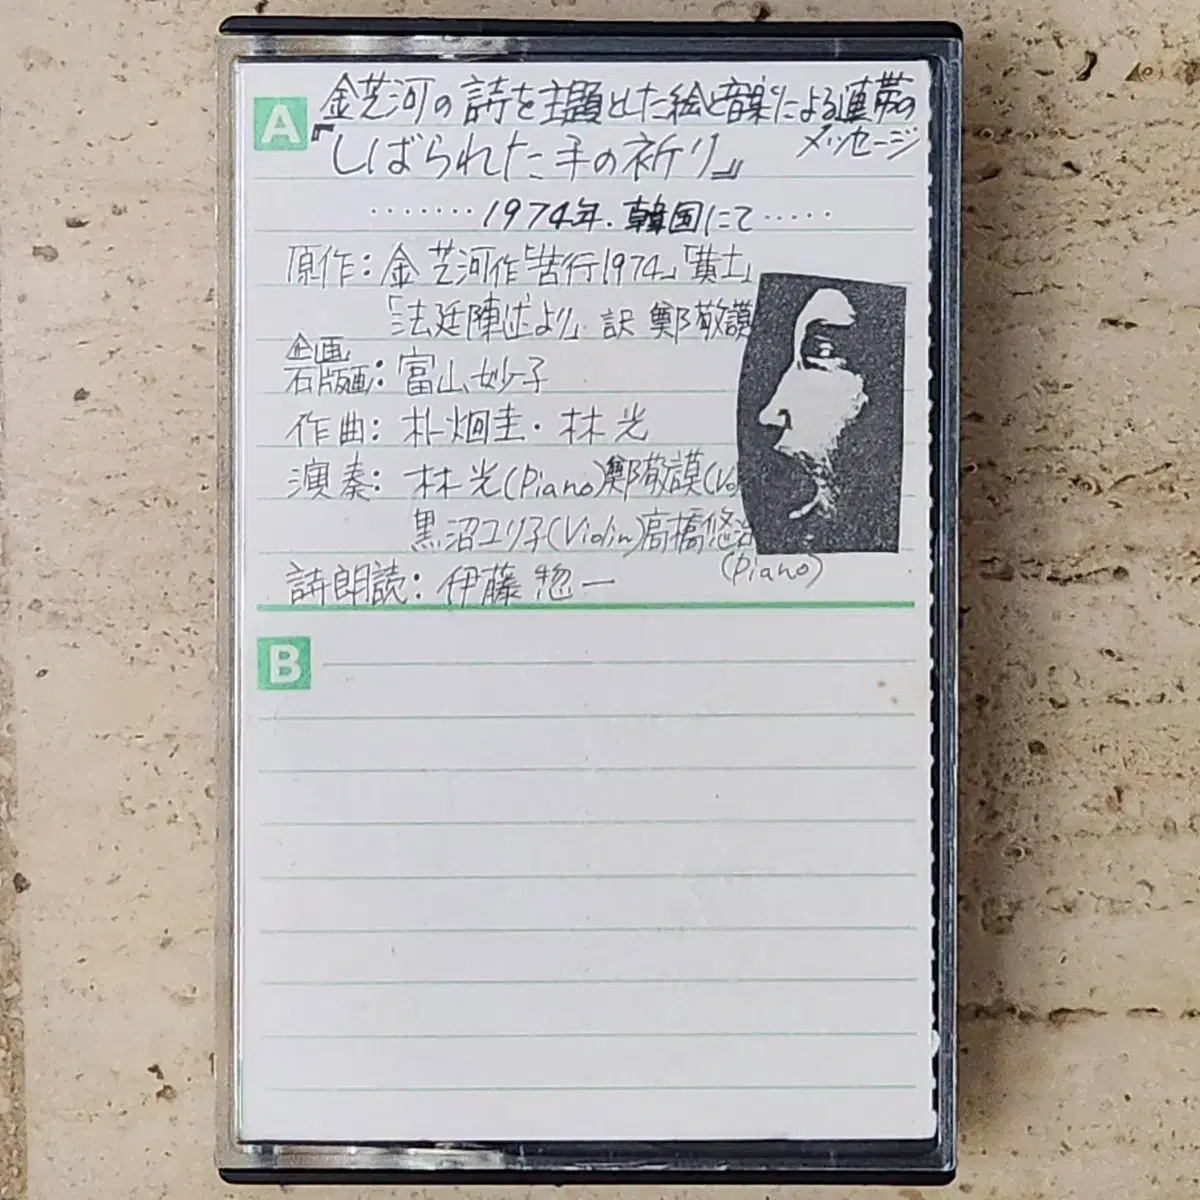 A 金芝河の詩を主題とした絵と音楽による連帯の
メッセージ
『しばられた手の祈り』
・・・・・・・1974年.韓国にて・・・・・
原作:金芝河作「苦行1974」「黄土」
「法廷陳述より」訳 鄭敬謨
企画
石版画:富山妙子
作曲:朴炯圭・林光
演奏:林光(Piano)鄭敬謨(Vo
黒沼ユリ子(Violin)高橋悠治
(Piano)
詩朗読:伊藤惣一
B